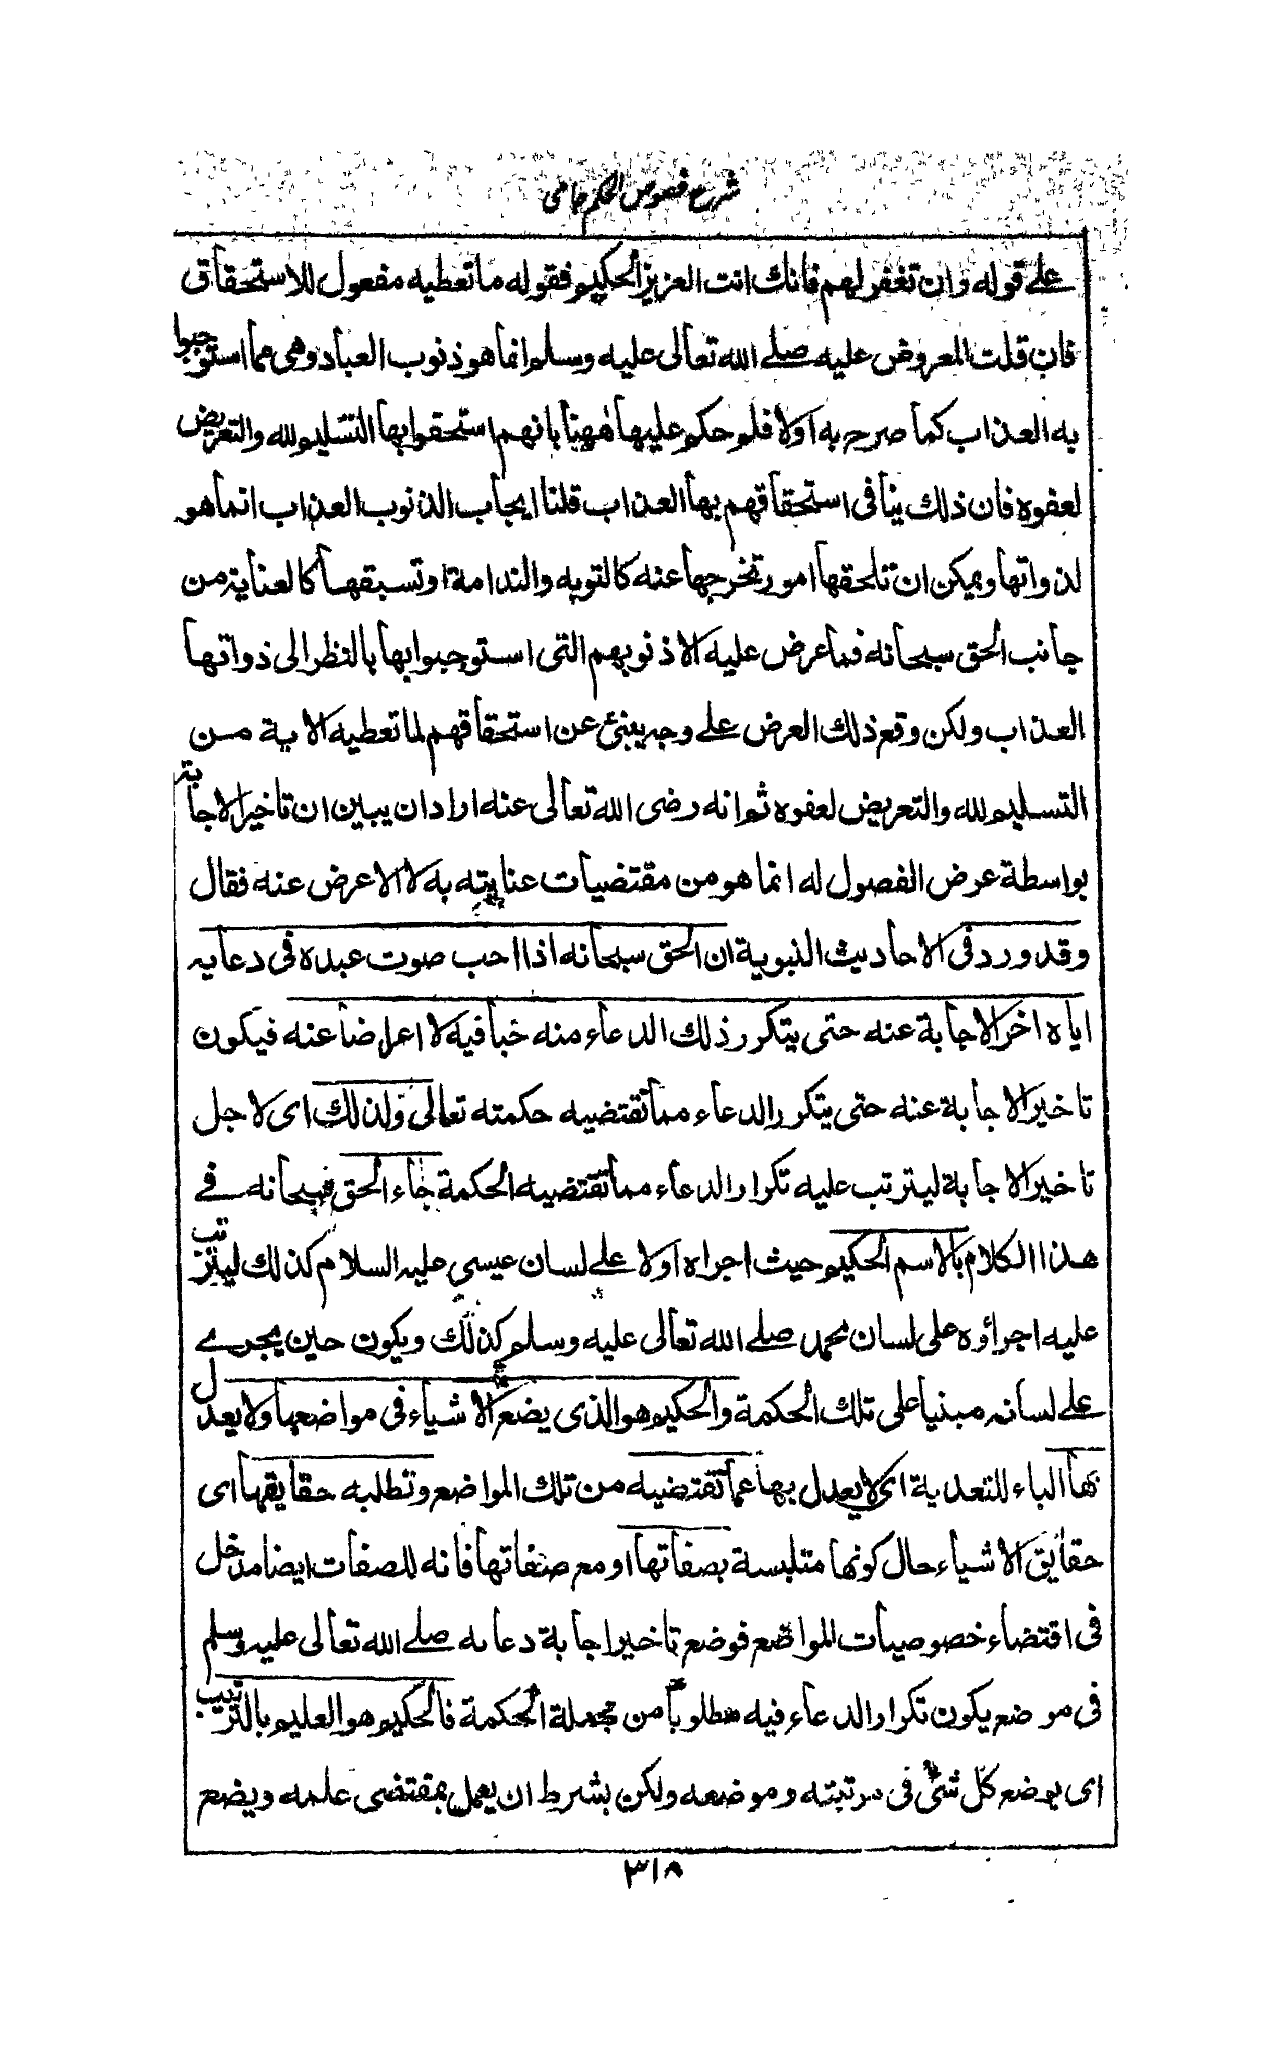 شرح فصوص الحكم جامى
على قوله وان تغفر لهم فانك انت العزيز الحكيم فقوله ما تعطيه مفعول للاستحقاق
فان قلت المعروض عليه صلى الله تعالى عليه وسلم انما هو ذنوب العباد وهى مما استوجبوا
به العذاب كما صرح به اولا فلو حكم عليها ههنا بانهم استحقوا بها التسليم لله والتعريض
لعفوه فان ذلك ينافى استحقاقهم بها العذاب قلنا ايجاب الذنوب العذاب انما هو
لذواتها ويمكن ان تلحقها امور تخرجها عنه كالتوبه والندامة او تسبقها كالعناية من
جانب الحق سبحانه فما عرض عليه الا ذنوبهم التى استوجبوا بها بالنظر الى ذواتها
العذاب ولكن وقع ذلك العرض على وجه ينبئ عن استحقاقهم لما تعطيه الاية من
التسليم لله والتعريض لعفوه ثم انه رضى الله تعالى عنه اراد ان يبين ان تاخير الاجابة
بواسطة عرض الفصول له انما هو من مقتضيات عنايته به لا الاعرض عنه فقال
وقد ورد فى الاحاديث النبوية ان الحق سبحانه اذا احب صوت عبده فى دعايه
اياه اخر الاجابة عنه حتى يتكرر ذلك الدعاء منه خبا فيه لا اعراضا عنه فيكون
تاخير الاجابة عنه حتى يتكرر الدعاء مما تقتضيه حكمته تعالى ولذلك اى لاجل
تاخير الاجابة ليترتب عليه تكرار الدعاء مما تقتضيه الحكمة جاء الحق سبحانه فى
هذا الكلام بالاسم الحكيم حيث اجراه اولا على لسان عيسى عليه السلام كذلك ليترتب
عليه اجراؤه على لسان محمد صلى الله تعالى عليه وسلم كذلك ويكون حين يجرى
على لسانه مبنيا على تلك الحكمة والحكيم هو الذى يضع الاشياء فى مواضعها ولا يعدل
بها الباء للتعدية اى لا يعدل بها عما تقتضيه من تلك المواضع وتطلبه حقايقها اى
حقايق الاشياء حال كونها متلبسة بصفاتها او مع صفاتها فانه للصفات ايضا مدخل
فى اقتضاء خصوصيات المواضع فوضع تاخير اجابة دعائه صلى الله تعالى عليه وسلم
فى موضع يكون تكرار الدعاء فيه مطلوبا من جملة الحكمة فالحكيم هو العليم بالترتيب
اى بوضع كل شئ فى مرتبته وموضعه ولكن بشرط ان يعمل بمقتضى علمه ويضع
٣١٨